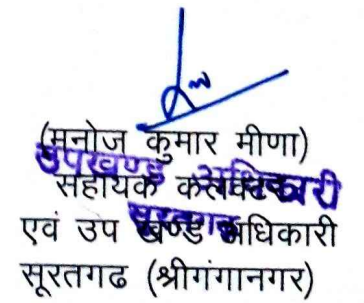 (मनोज कुमार मीणा)
उपखण्ड अधिकारी
सहायक कलक्टर
सूरतगढ
एवं उप खण्ड अधिकारी
सूरतगढ (श्रीगंगानगर)